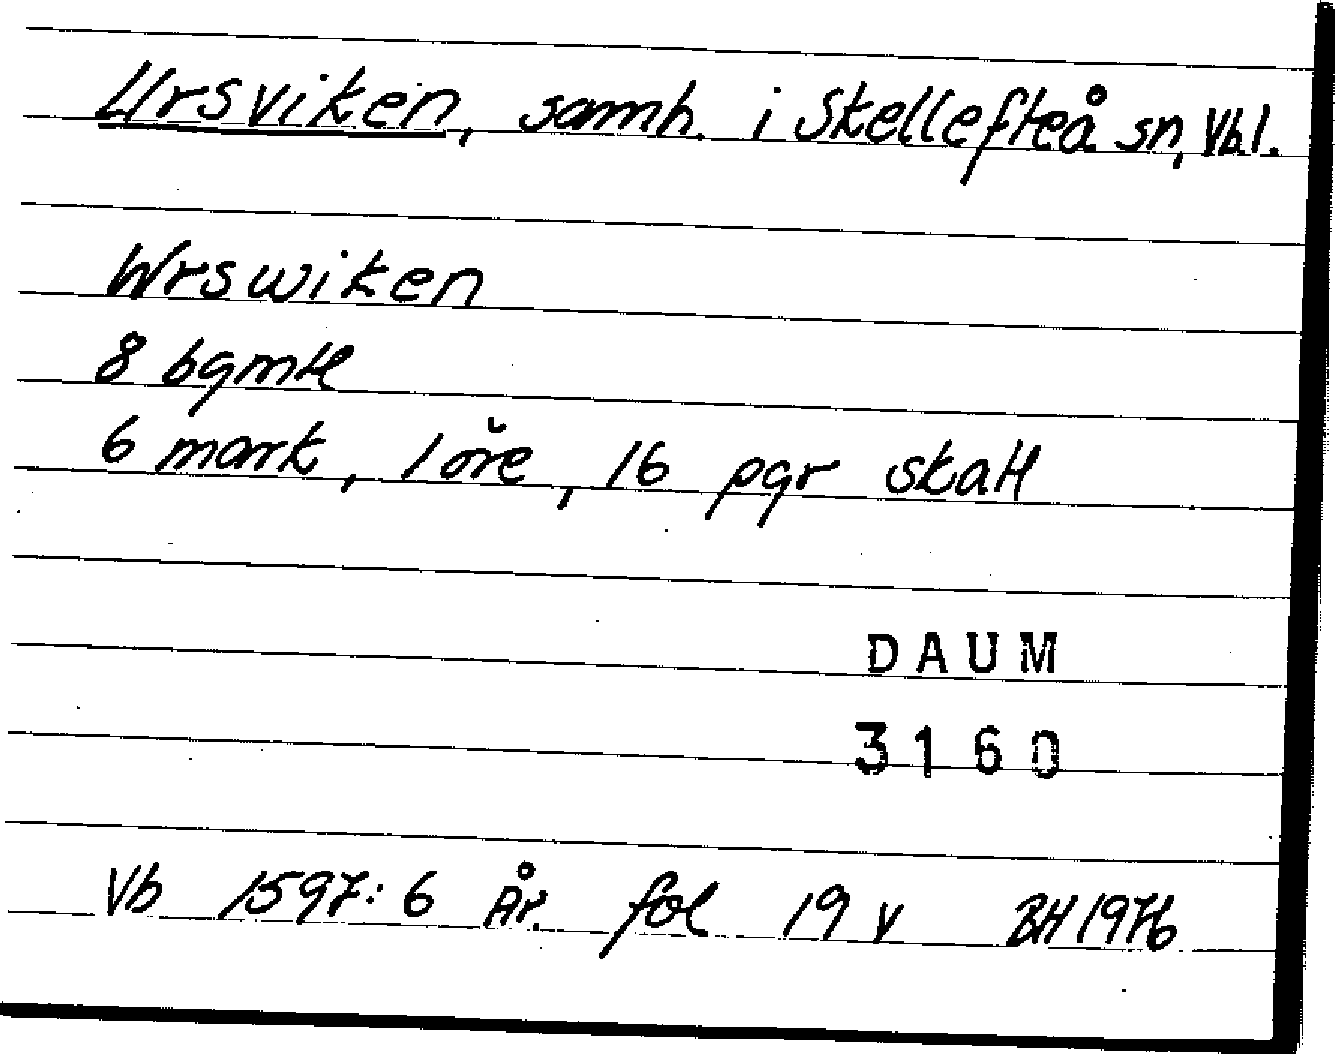 Ursviken, samh. i Skellefteå sn, Vbl.
Wrswiken
8 bgmtl
6 mark, 1 öre, 16 pgr skatt
DAUM
3160
Vb 1597:6 År. fol 19 v BH 1976